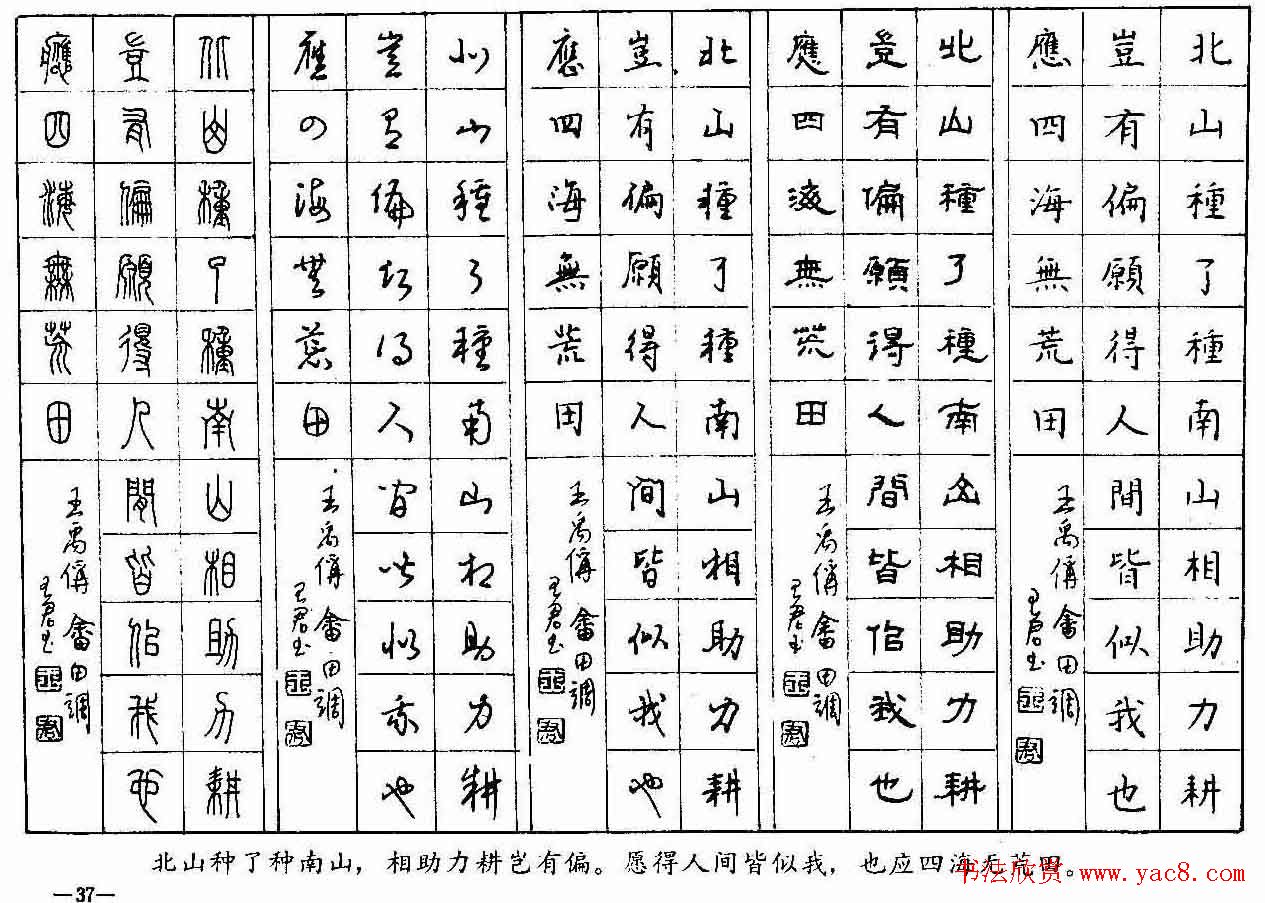 北山種了種南山相助力耕
豈有偏願得人間皆似我也
應四海無荒田
王禹偁畬田調
王君书
北山種了種南山相助力耕
豈有偏願得人間皆佀我也
應四海無荒田
王禹偁畬田調
王君书
北山種了種南山相助力耕
豈有偏願得人間皆似我也
應四海無荒田
王禹偁畬田調
王君书
北山種了種南山相助力耕
豈有偏願得人間皆似我也
應四海無荒田
王禹偁畬田調
王君书
北山種了種南山相助力耕
豈有偏願得人間皆佀我也
應四海無荒田
王禹偁畬田調
王君书
北山种了种南山，相助力耕岂有偏。愿得人间皆似我，也应四海无荒田。
书法欣赏 www.yac8.com
—37—